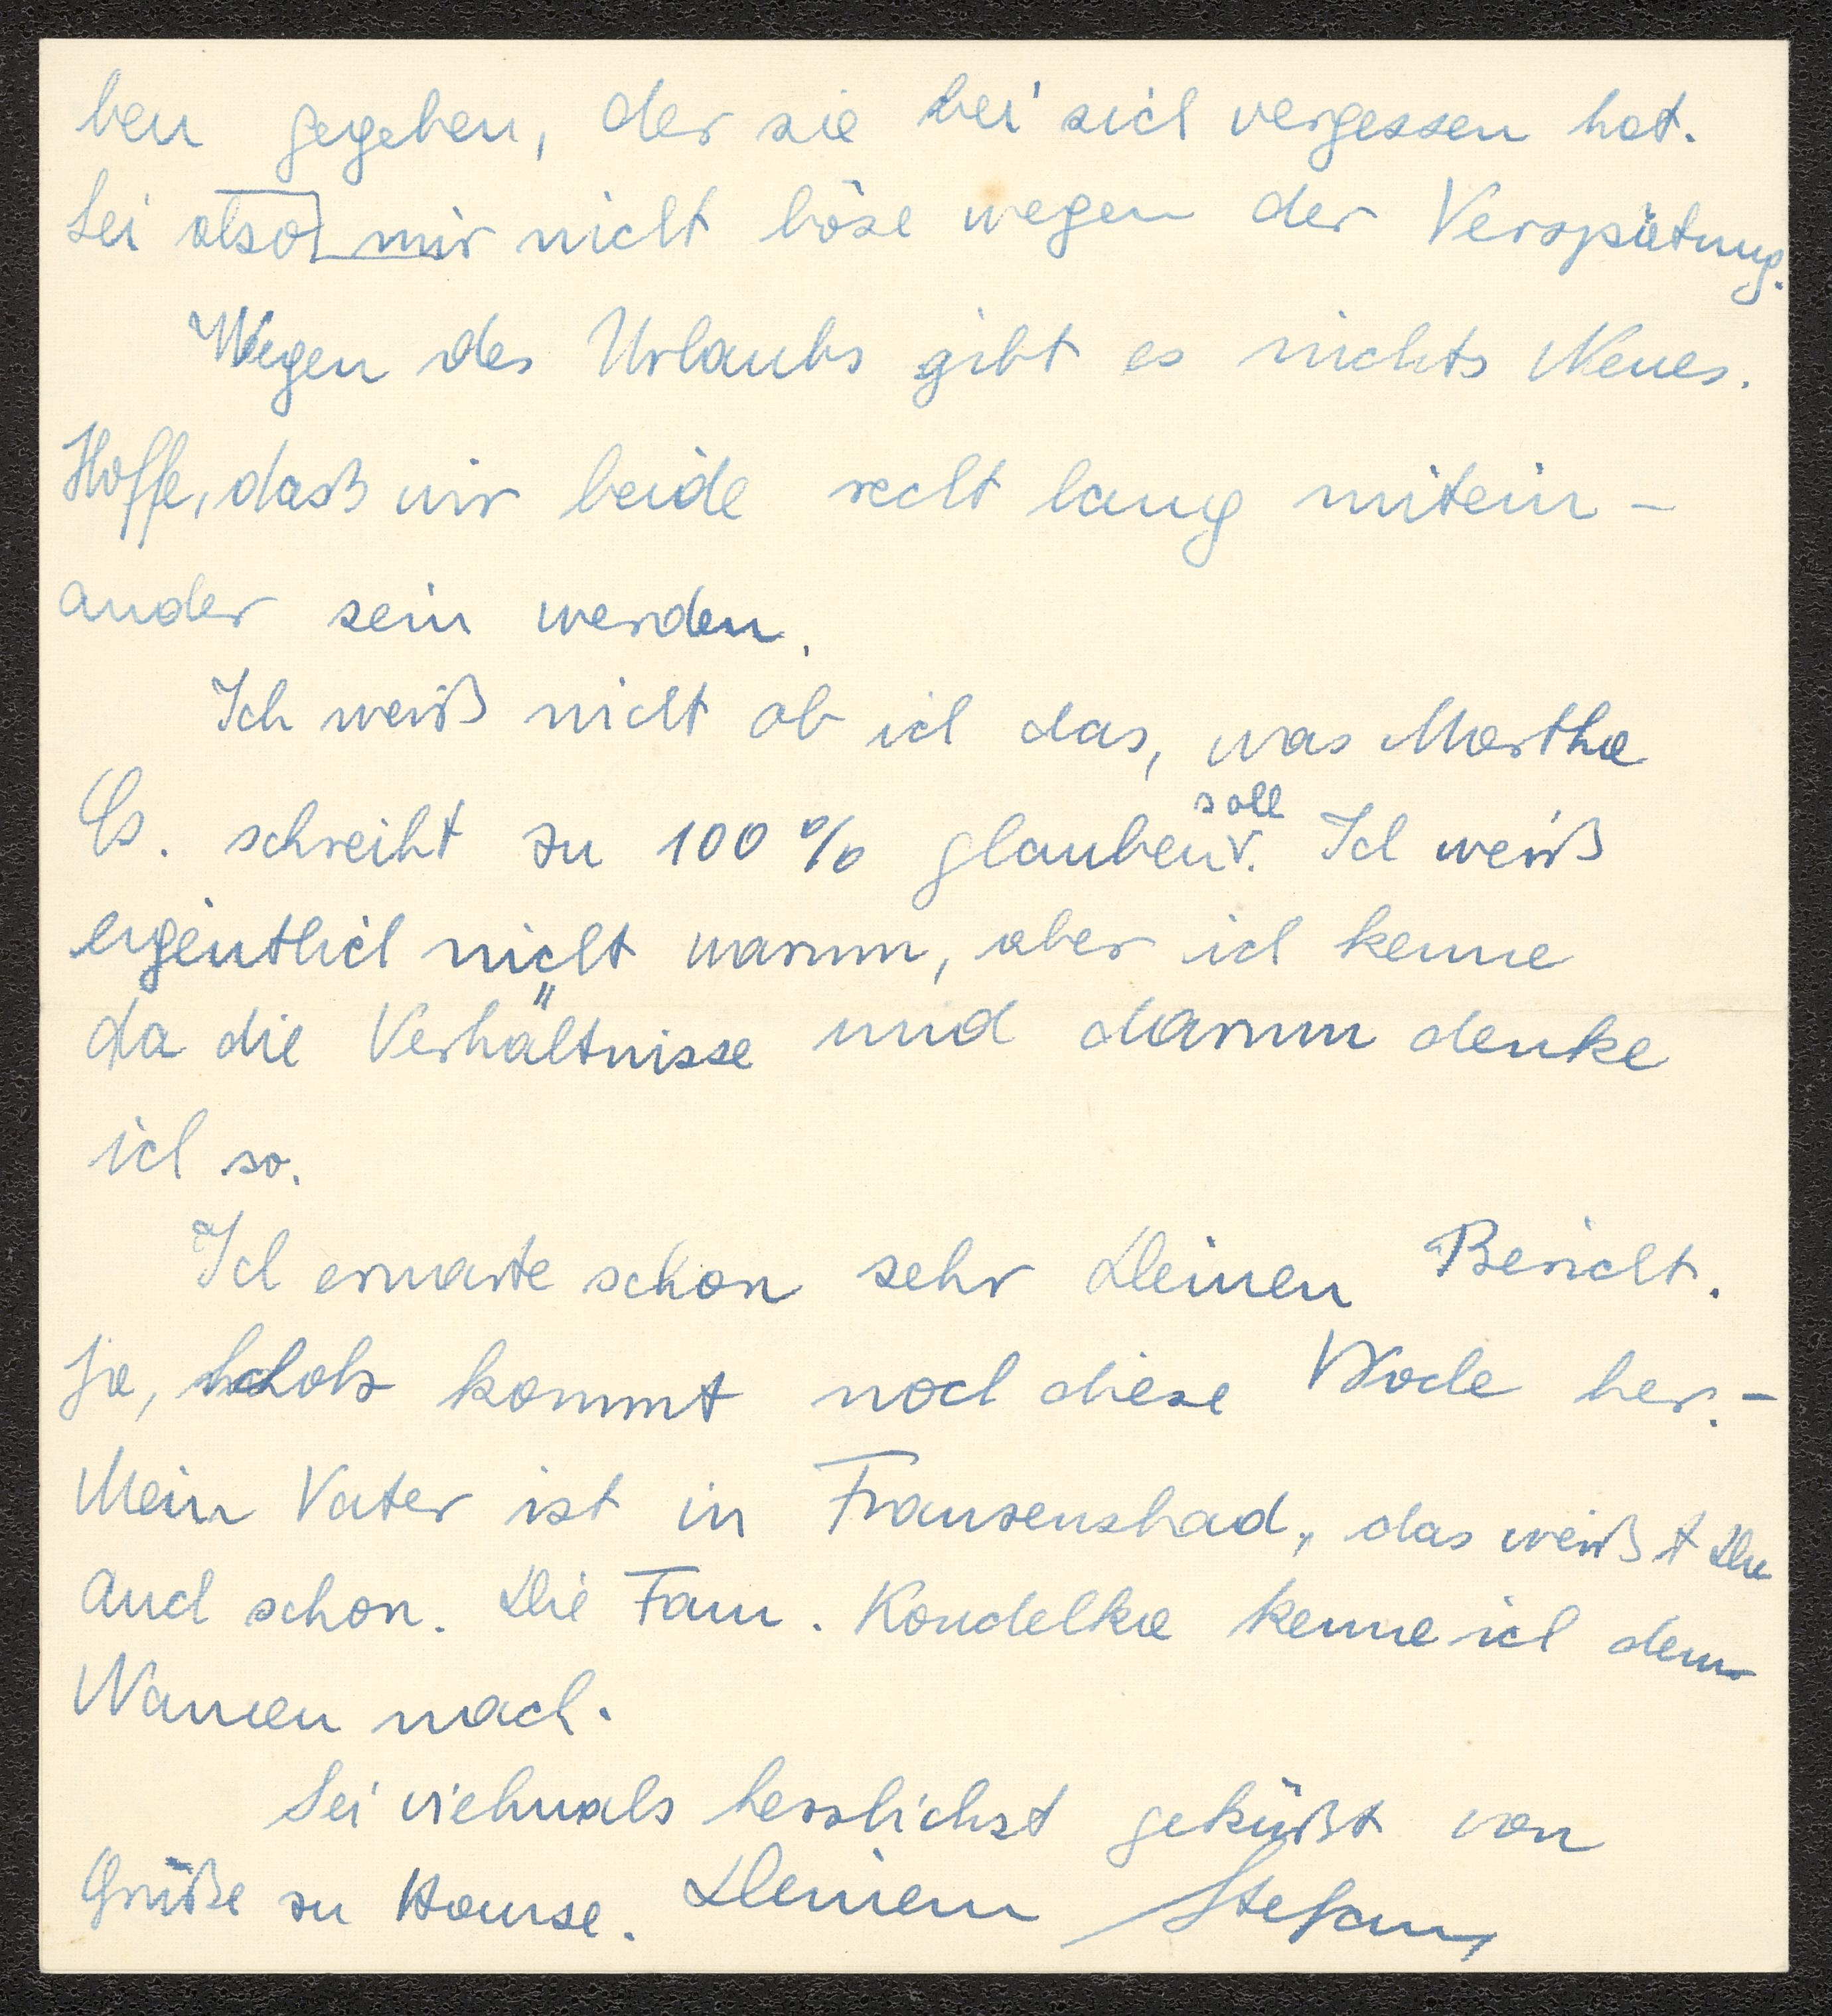 ben gegeben, der sie bei sich vergessen hat.
Sei also mir nicht böse wegen der Verspätung.
Wegen des Urlaubs gibt es nichts Neues.
Hoffe, daß wir beide recht lang mitein-
ander sein werden.
Ich weiß nicht ob ich das, was Martha
Cs. schreibt zu 100% glauben soll. Ich weiß
eigentlich nicht warum, aber ich kenne
da die Verhältnisse und darum denke
ich so.
Ich erwarte schon sehr Deinen Bericht.
Ja, kommt noch diese Woche her.-
Mein Vater ist in Franzensbad, das weißt Du
auch schon. Die Fam. Koudelka kenne ich dem
Namen nach.
Sei vielmals herzlichst geküßt von
Grüße zu Hause. Deinem Stefan